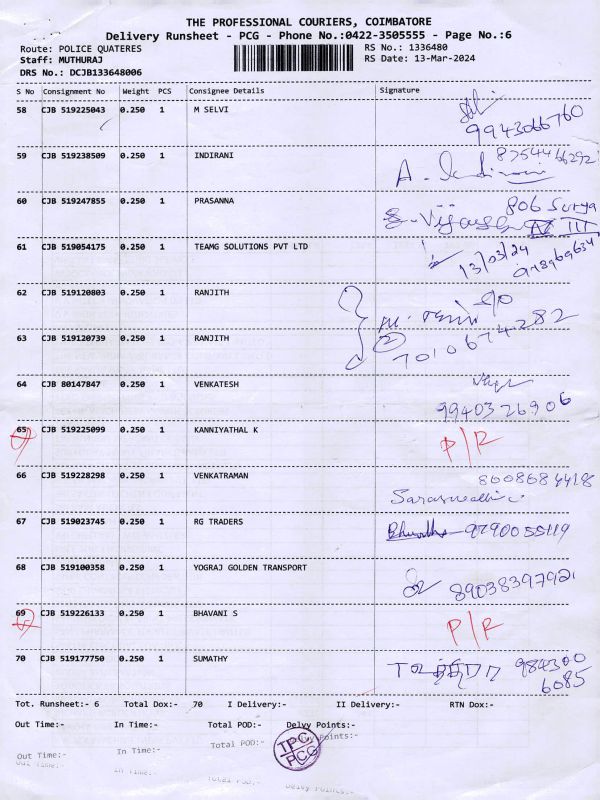 THE PROFESSIONAL COURIERS, COIMBATORE
Delivery Runsheet - PCG - Phone No.:0422-3505555 - Page No.:6
Route: POLICE QUATERES RS No.: 1336480
Staff: MUTHURAJ RS Date: 13-Mar-2024
DRS No.: DCJB133648006
S No Consignment No Weight PCS Consignee Details Signature
58 CJB 519225043 0.250 1 M SELVI
9943066760
59 CJB 519238509 0.250 1 INDIRANI 8754466292
A. Indirani
60 CJB 519247855 0.250 1 PRASANNA 806 Surya
III
61 CJB 519054175 0.250 1 TEAMG SOLUTIONS PVT LTD 13/03/24
62 CJB 519120803 0.250 1 RANJITH
63 CJB 519120739 0.250 1 RANJITH 2 7010674282
64 CJB 80147847 0.250 1 VENKATESH
9940326906
65 CJB 519225099 0.250 1 KANNIYATHAL K P/R
66 CJB 519228298 0.250 1 VENKATRAMAN 8608684418
67 CJB 519023745 0.250 1 RG TRADERS 9790055119
68 CJB 519100358 0.250 1 YOGRAJ GOLDEN TRANSPORT
8903839792
69 CJB 519226133 0.250 1 BHAVANI S P/R
70 CJB 519177750 0.250 1 SUMATHY 984300
6085
Tot. Runsheet:- 6 Total Dox:- 70 I Delivery:- II Delivery:- RTN Dox:-
Out Time:- In Time:- Total POD:- Delvy Points:-
Out Time:- In Time:- Total POD:- Points:-
Out Time:- In Time:- Total POD:- Delvy Points:-
TPC
PCG